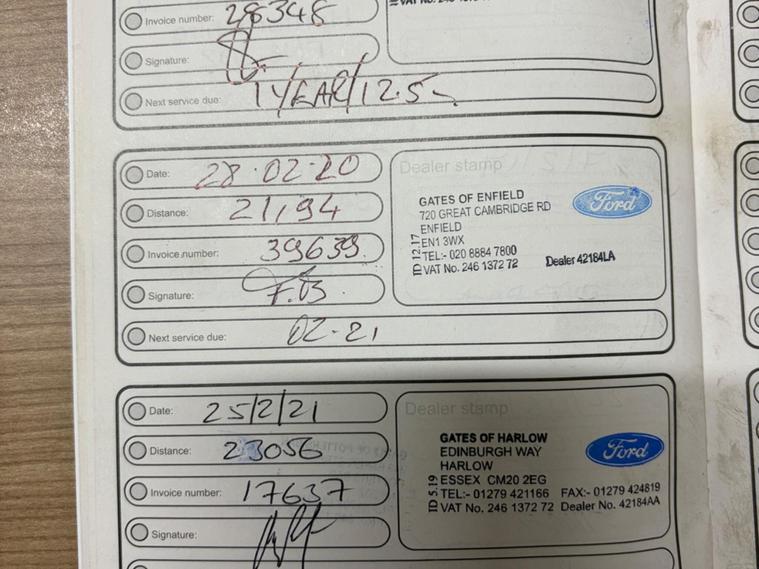 Invoice number: 28348
Signature:
Next service due: 1 YEAR/12.5
Date: 28.02.20
Distance: 21,94
Invoice number: 39639
Signature: F.03
Next service due: 02-21
Dealer stamp
GATES OF ENFIELD
720 GREAT CAMBRIDGE RD
ENFIELD
EN1 3WX
TEL:- 020 8884 7800
VAT No. 246 1372 72 Dealer 42184LA
ID 12.17
Ford
Date: 25/2/21
Distance: 23056
Invoice number: 17637
Signature:
Dealer stamp
GATES OF HARLOW
EDINBURGH WAY
HARLOW
ESSEX CM20 2EG
TEL:- 01279 421166 FAX:- 01279 424819
VAT No. 246 1372 72 Dealer No. 42184AA
ID 5.19
Ford